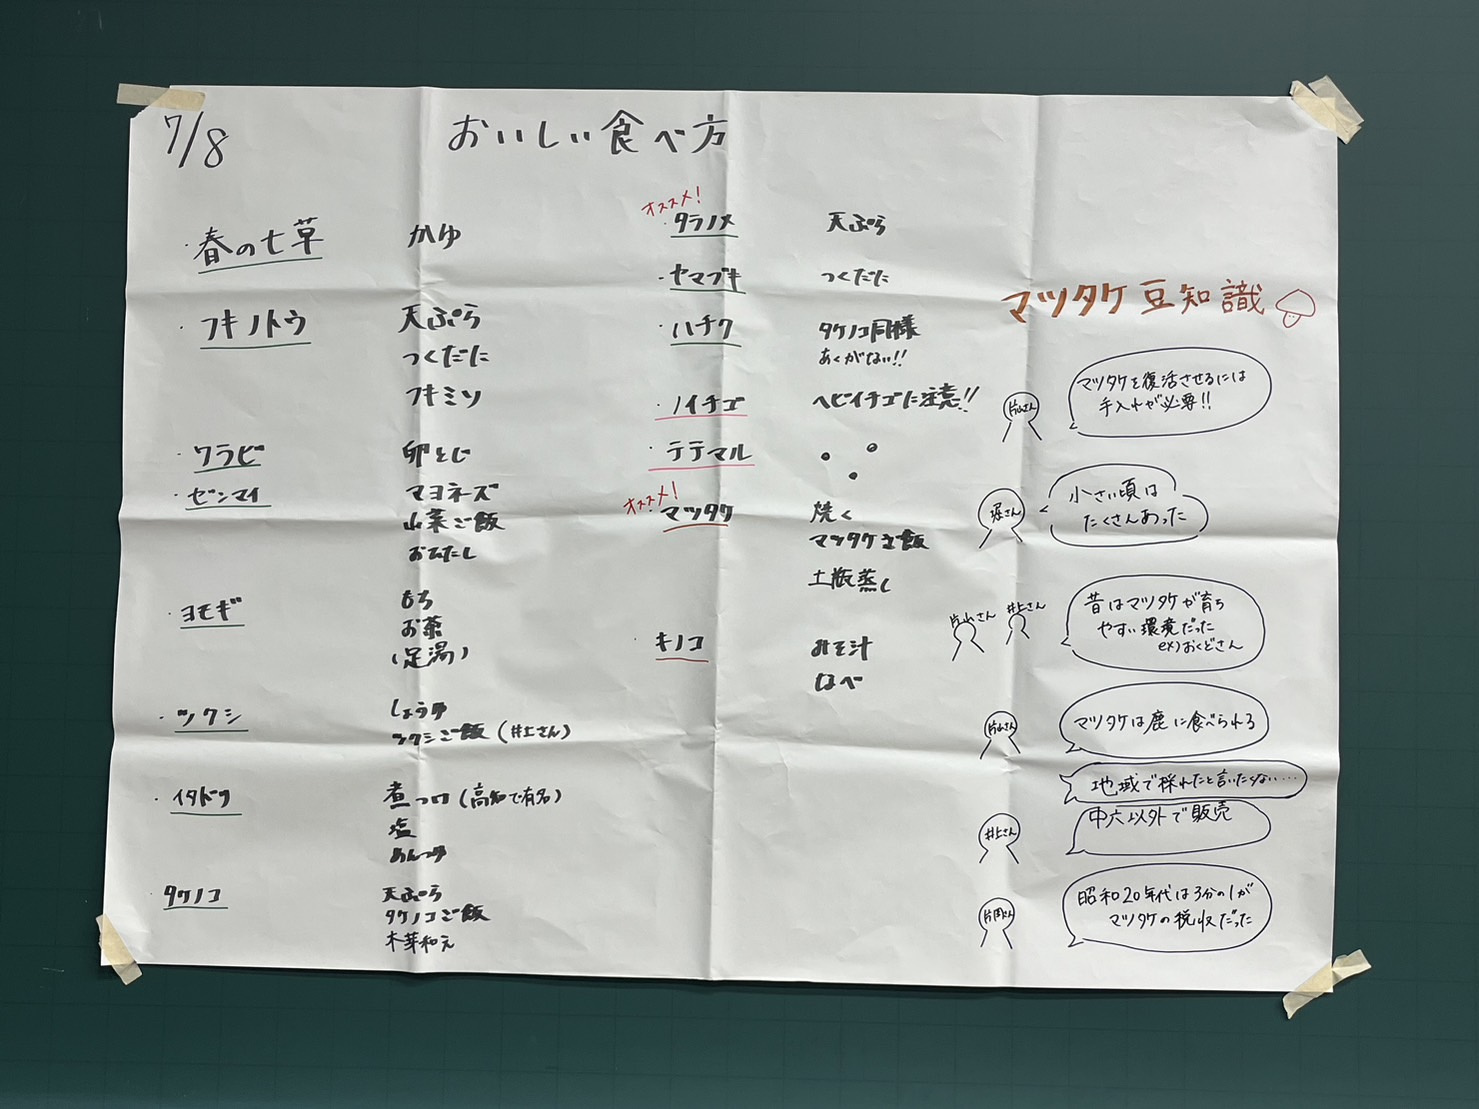 7/8
おいしい食べ方
・春の七草 かゆ
・フキノトウ 天ぷら
つくだに
フキミソ
・ワラビ 卵とじ
・ゼンマイ マヨネーズ
山菜ご飯
おひたし
・ヨモギ もち
お茶
(足湯)
・ツクシ しょうゆ
ツクシご飯(井上さん)
・イタドリ 煮つけ(高知で有名)
塩
めんつゆ
・タケノコ 天ぷら
タケノコご飯
木芽和え
オススメ!
・タラノメ 天ぷら
・ヤマブキ つくだに
・ハチク タケノコ同様
あくがない!!
・ノイチゴ ヘビイチゴに注意!!
・テテマル
オススメ!
・マツタケ 焼く
マツタケご飯
土瓶蒸し
・キノコ みそ汁
なべ
マツタケ豆知識
片山さん
マツタケを復活させるには
手入れが必要!!
堀さん
小さい頃は
たくさんあった
片山さん 井上さん
昔はマツタケが育ち
やすい環境だった
ex)おくどさん
片山さん
マツタケは鹿に食べられる
地域で採れたと言いたくない…
井上さん
中六以外で販売
片岡さん
昭和20年代は3分の1が
マツタケの税収だった